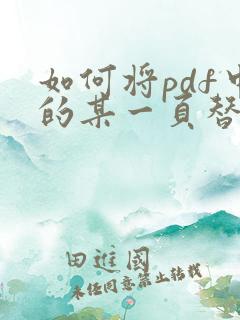 如何将pdf中
的某一页替
田進國
未经同意禁止转载